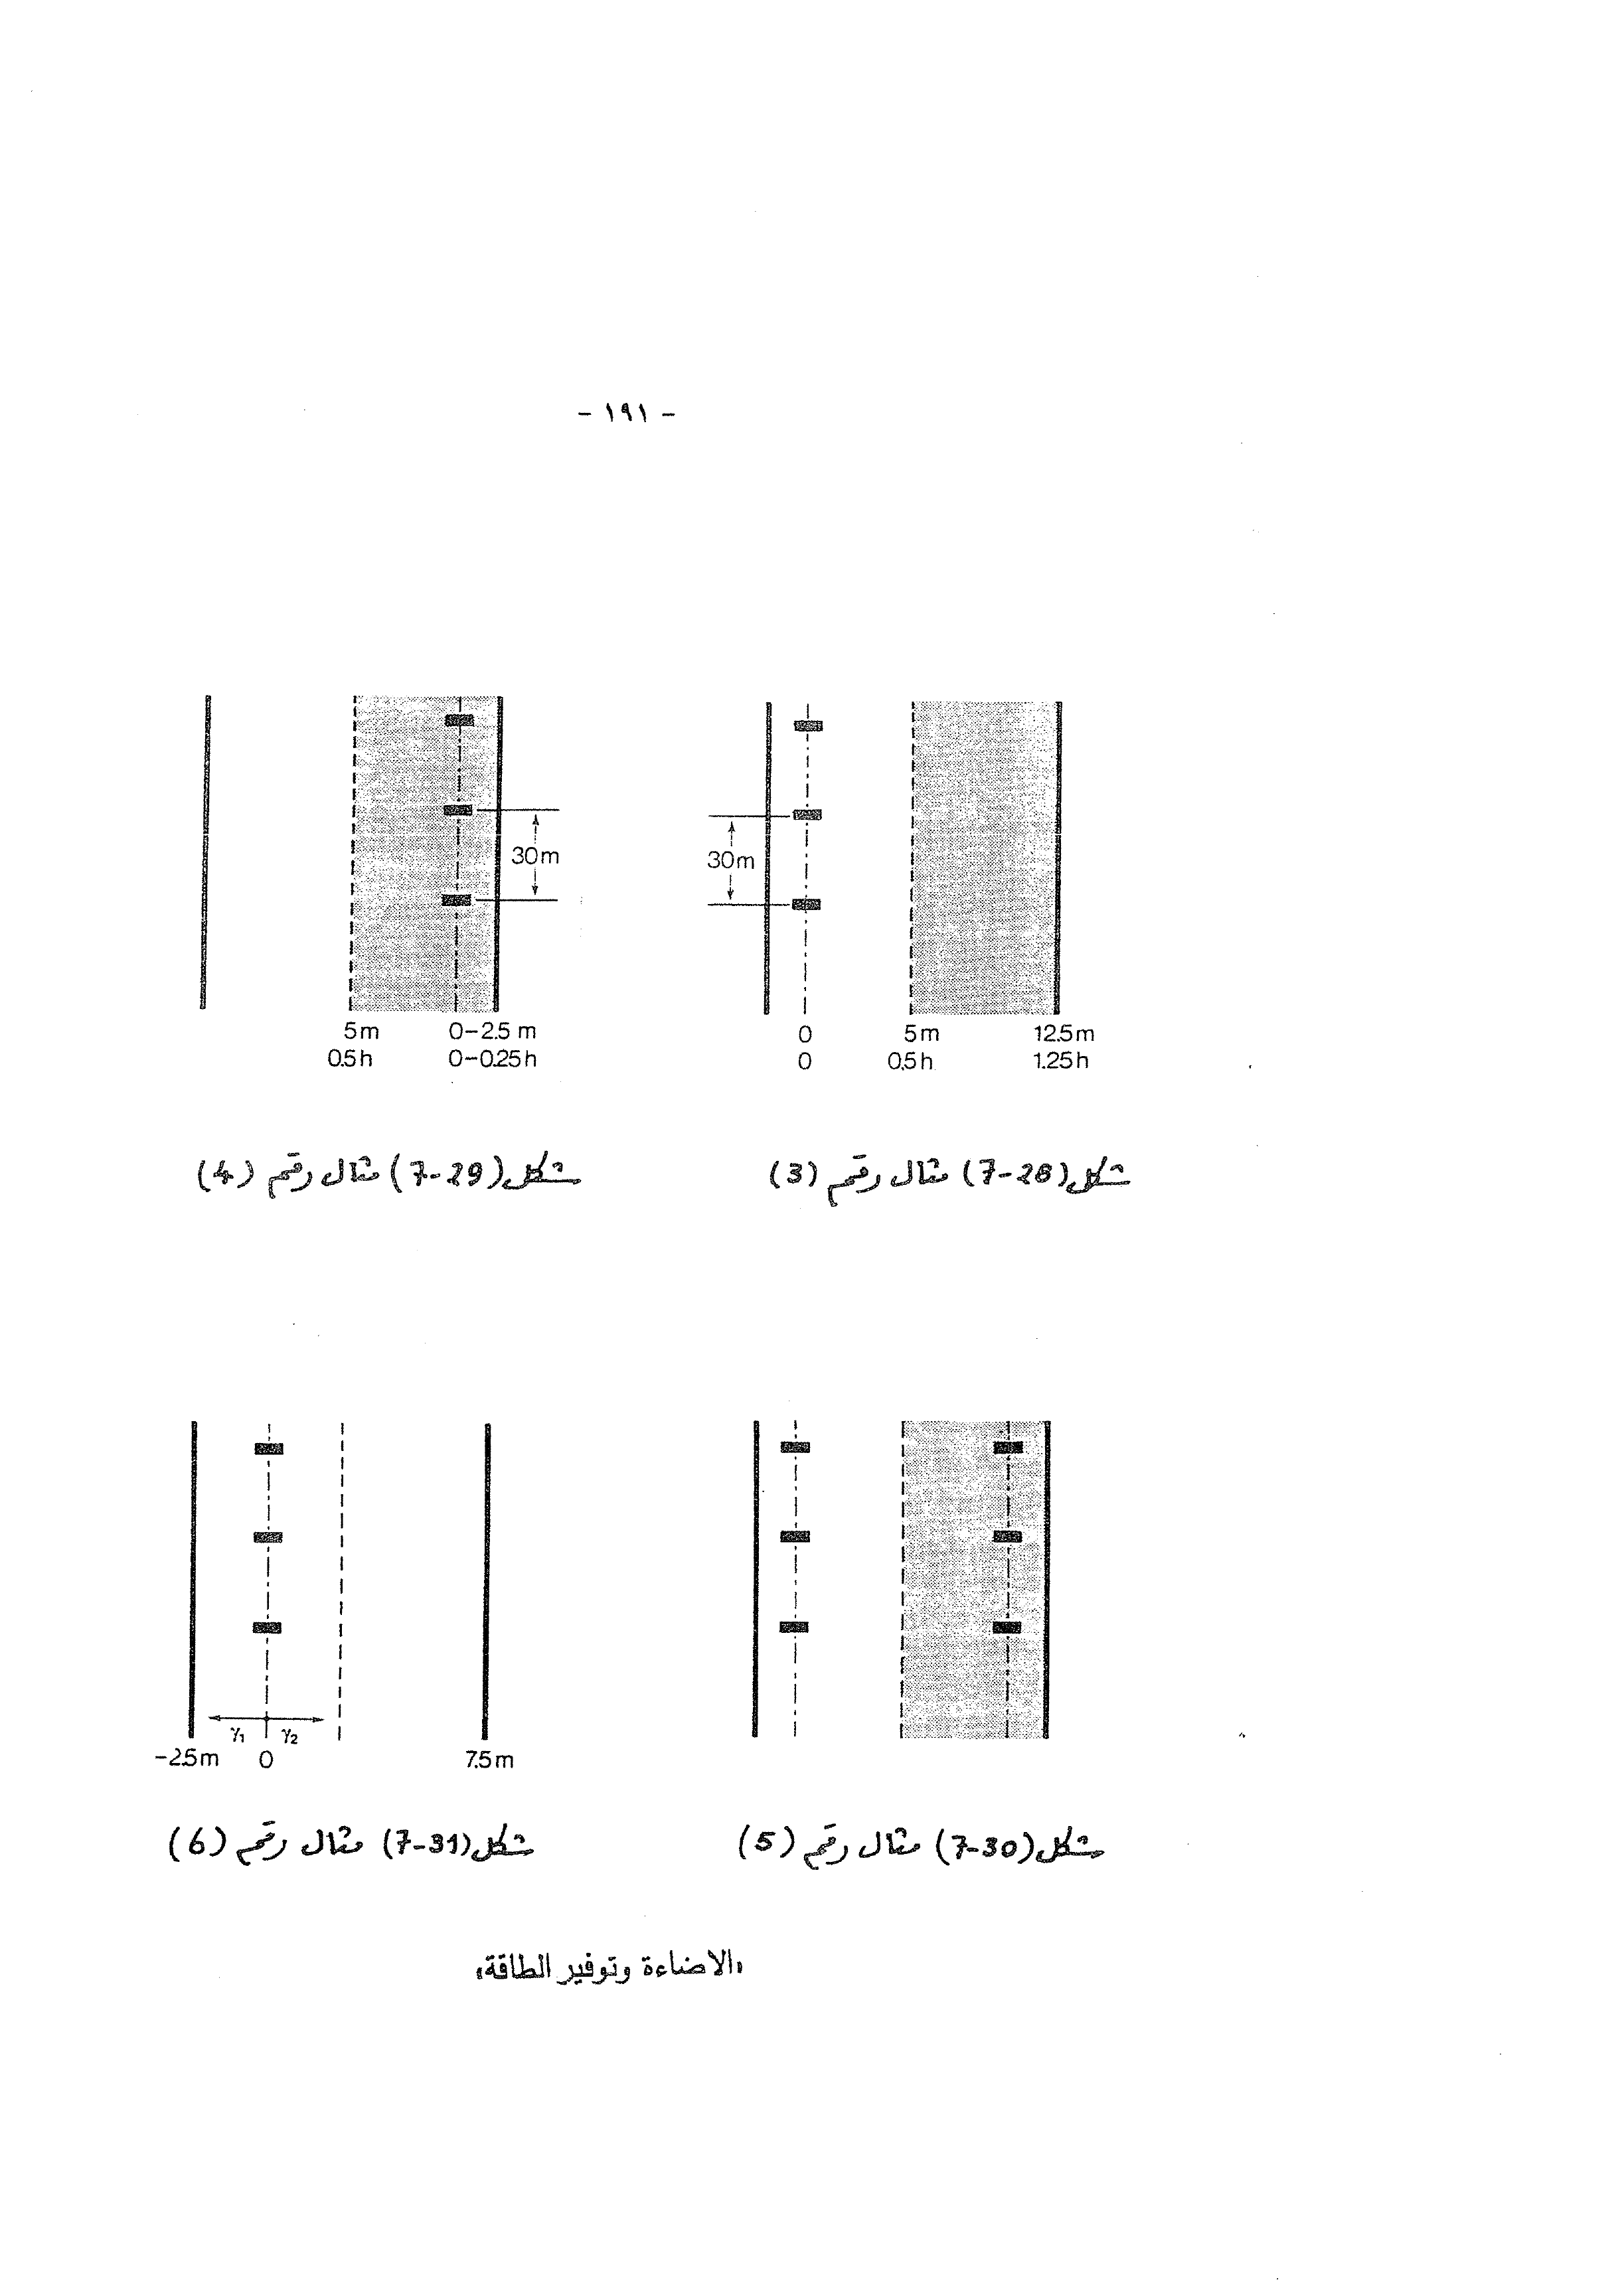 - ١٩١ -
30m
30m
0
5m
12.5m
0
0.5h
1.25h
5m
0-2.5 m
0.5h
0-0.25h
شكل (7-28) مثال رقم (3)
شكل (7-29) مثال رقم (4)
γ1
γ2
-2.5m
0
7.5m
شكل (7-30) مثال رقم (5)
شكل (7-31) مثال رقم (6)
«الاضاءة وتوفير الطاقة»